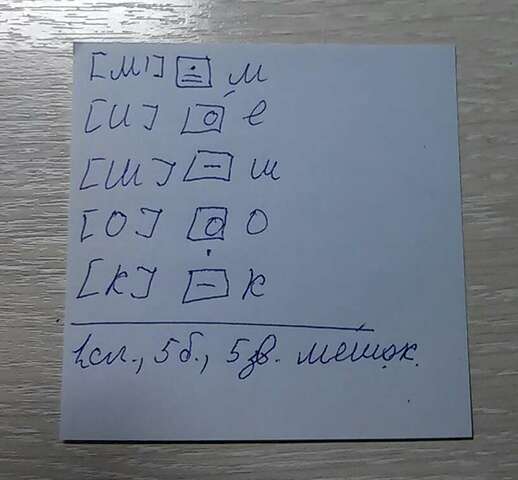 [м'] м
[и] е
[ш] ш
[о] о
[к] к
2 сл., 5 б., 5 зв. мешок.